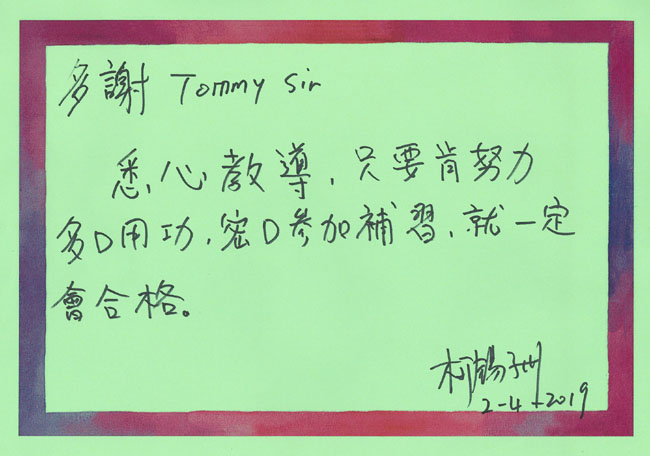 多謝 Tommy Sir
悉心教導，只要肯努力
多D用功，密D參加補習，就一定
會合格。
柯錫
2-4-2019